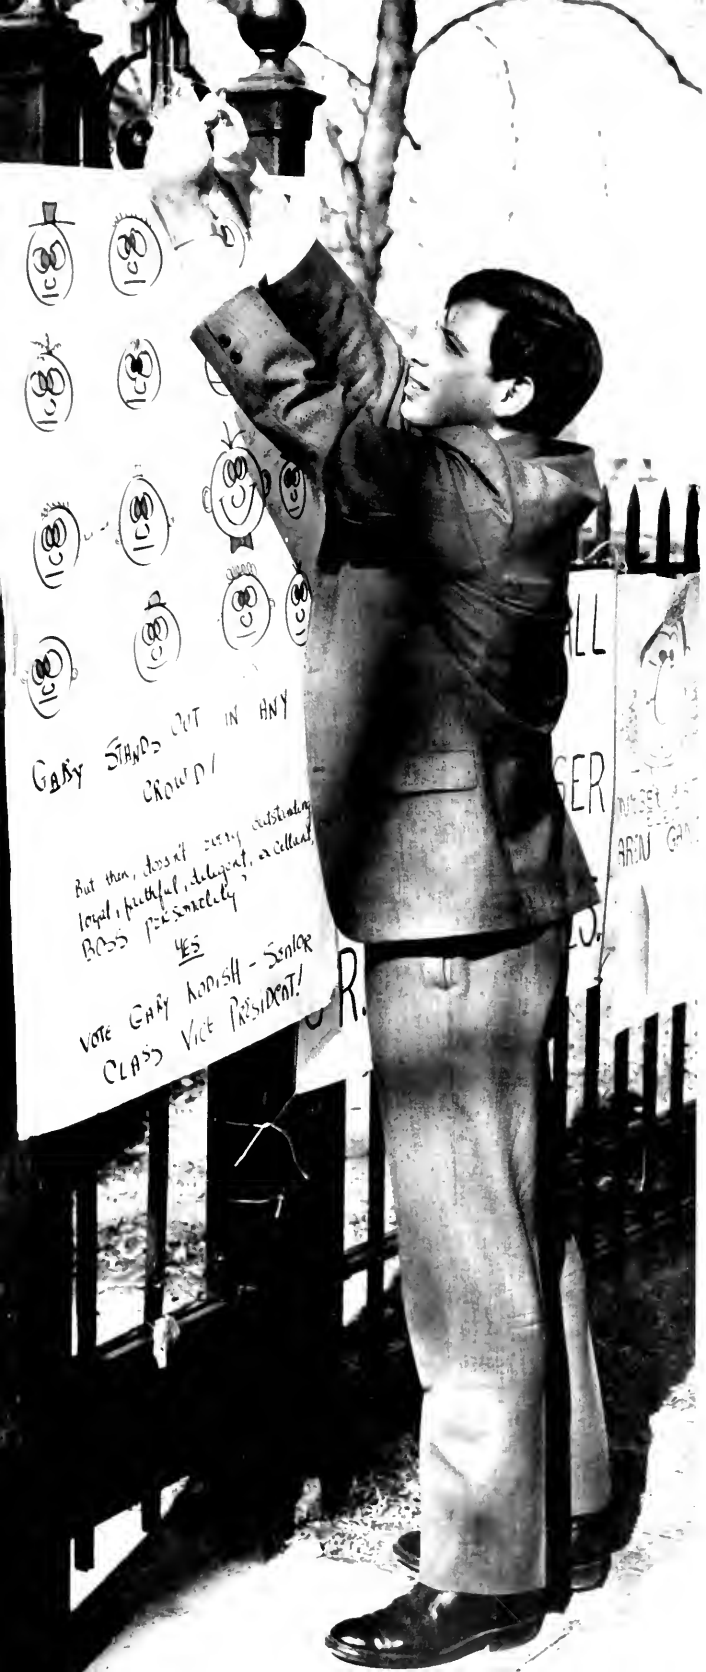 GARY STANDS OUT IN ANY
CROWD!
But then, doesn't every outstanding
loyal, faithful, diligent, excellent,
BOSS personality
YES
VOTE GARY KODISH - SENIOR
CLASS VICE PRESIDENT!
ALL
SER
R.